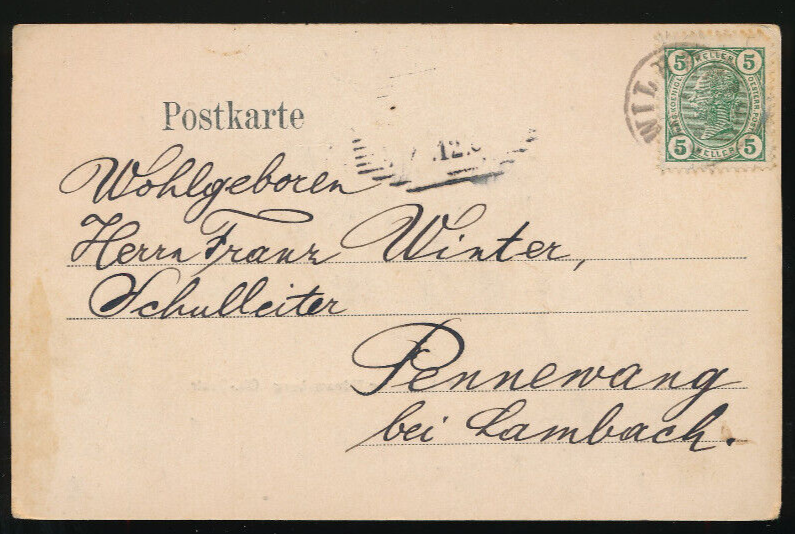 Postkarte
5 HELLER 5
5 HELLER 5
WIL
.12.
Wohlgeboren
Herrn Franz Winter,
Schulleiter
Pennewang
bei Lambach.